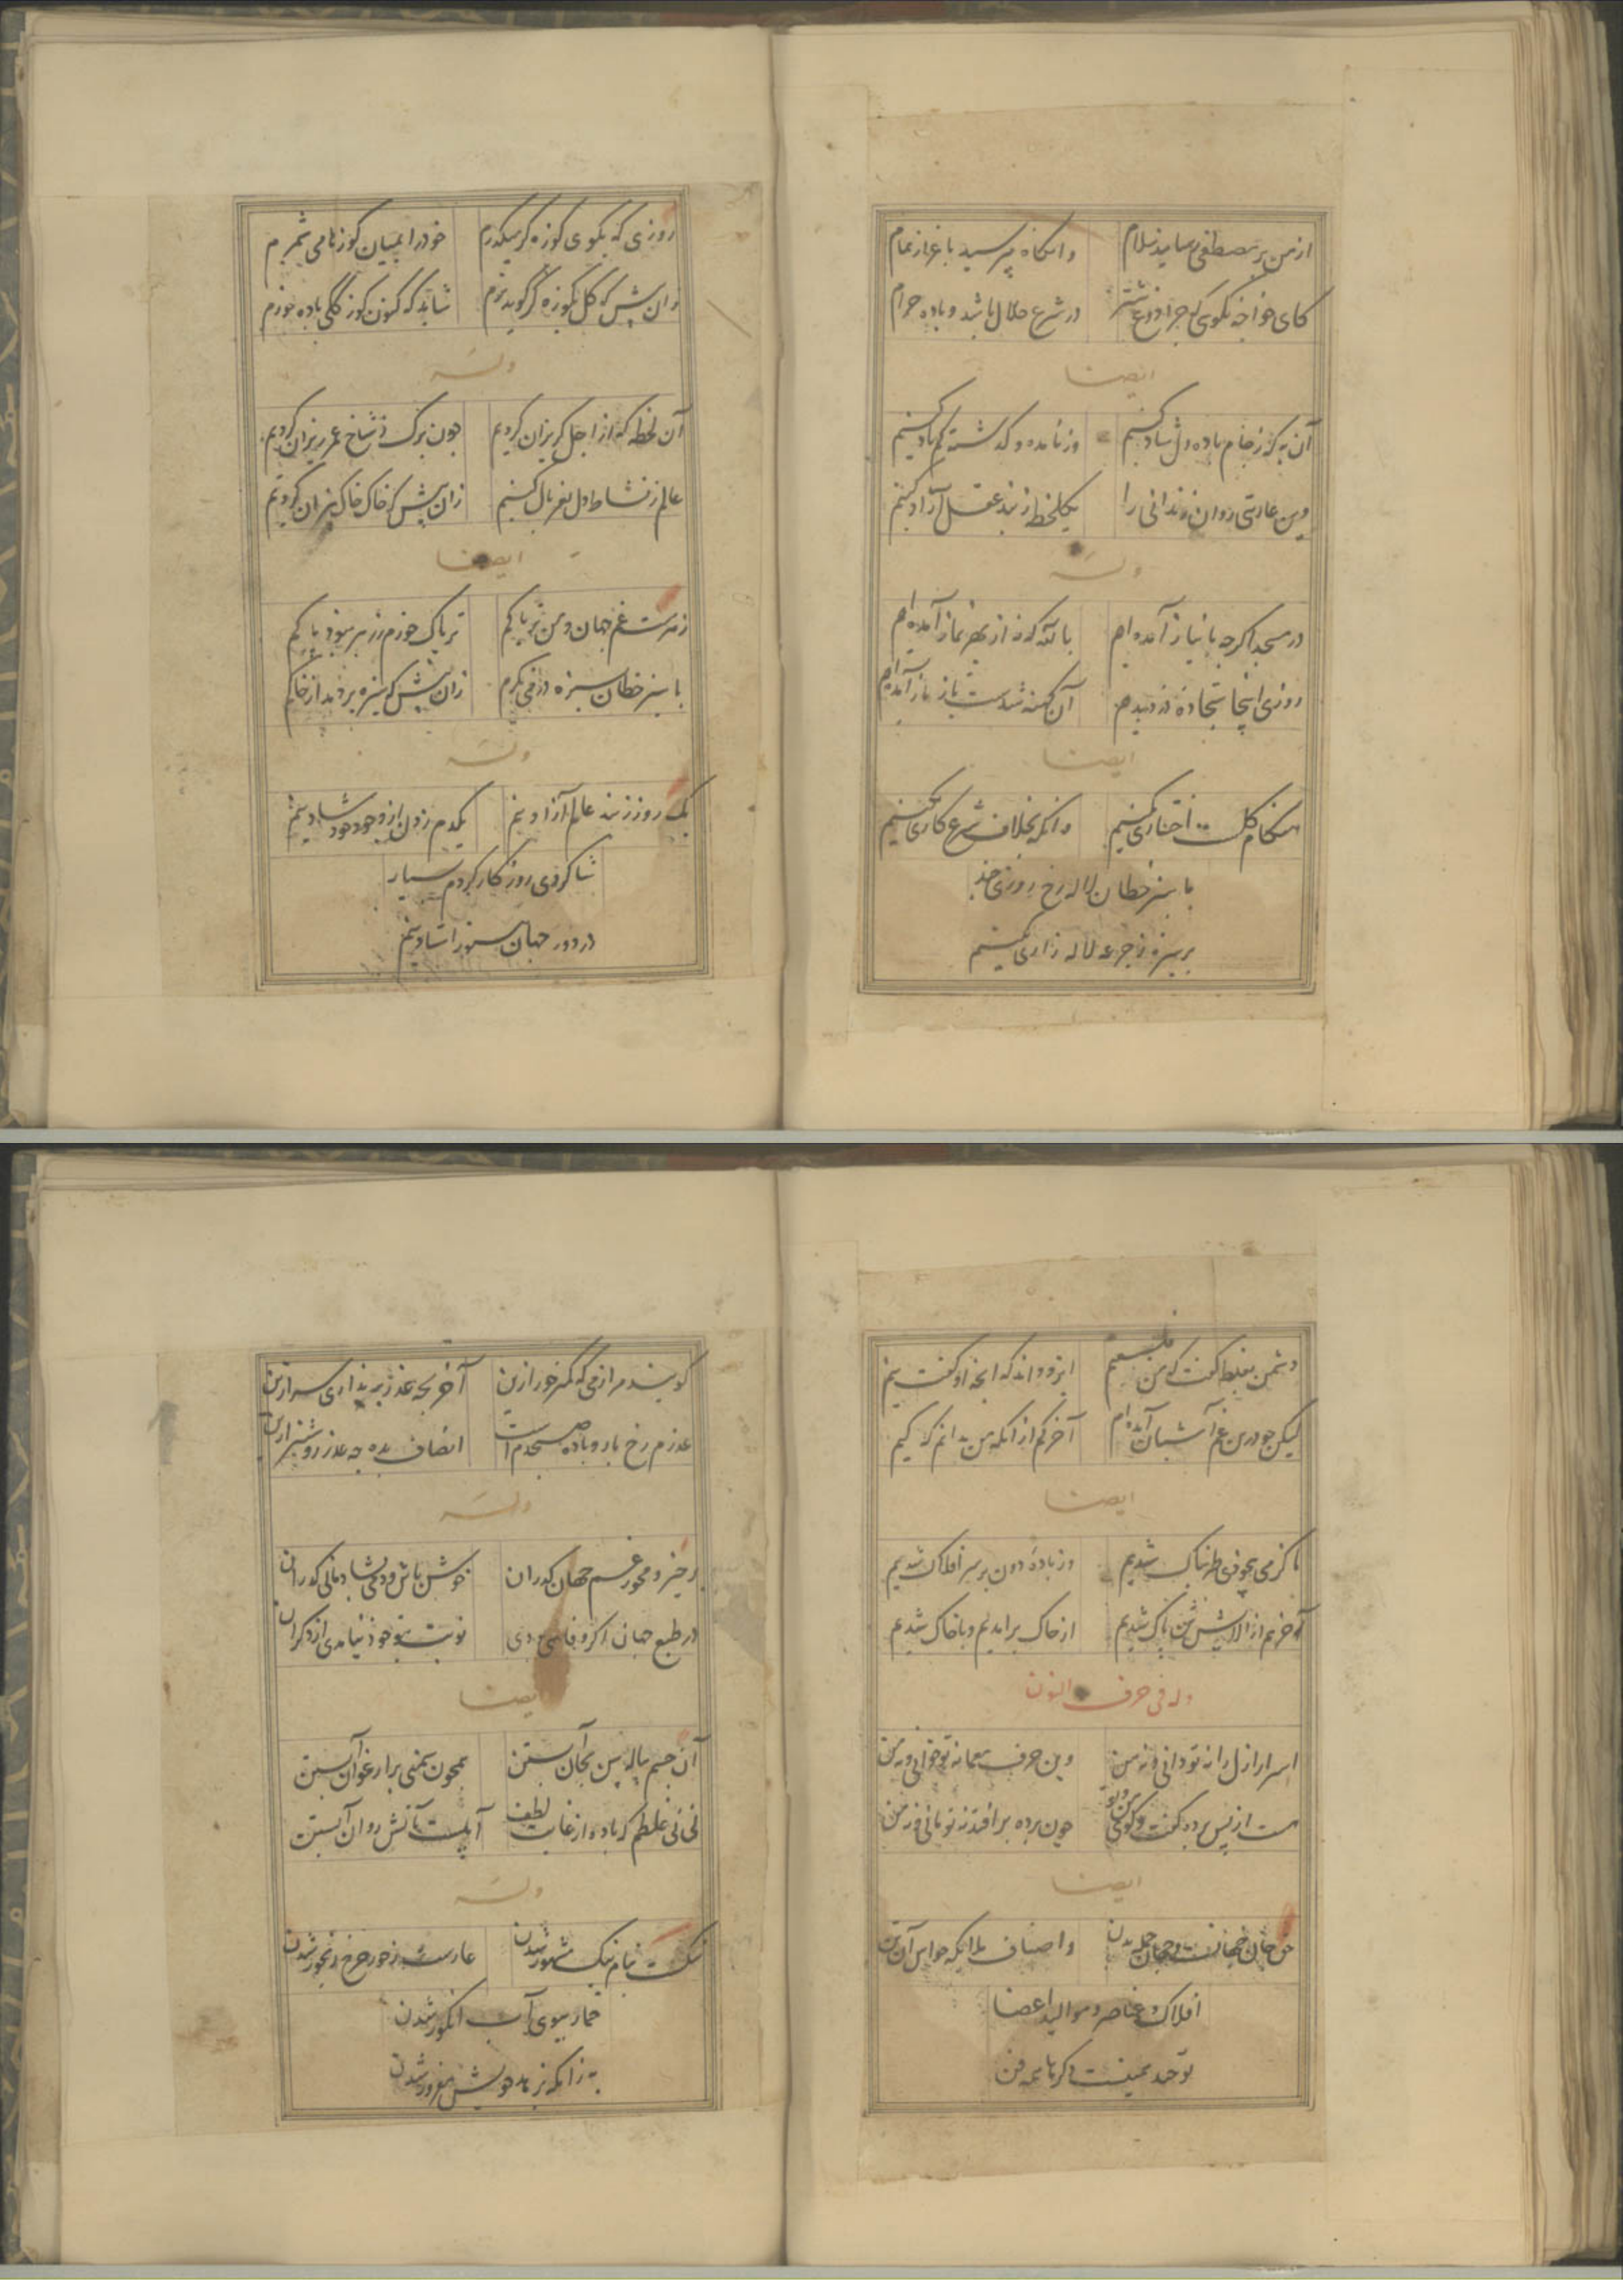 از من بر مصطفی رسانید سلام وانکاه بپرسید باعزاز تمام
کای خواجه بکوی کر چرا دوغ شتر در شرع حلال باشد و باده حرام
ایضا
آن به که ز جام باده دل شاد کنیم وز نامده و کذشته کم یاد کنیم
وین عاریتی روان زندانی را یکلحظه ز بند عقل آزاد کنیم
وله
در مسجد اکرچه با نیاز آمده‌ام بالله که نه از بهر نماز آمده‌ام
روزی اینجا سجاده دزدیدم آن کهنه شدست باز باز آمده‌ام
ایضا
هنکام کل است اختیاری بکنیم وانکه بخلاف شرع کاری بکنیم
با سبز خطان لاله رخ روزی چند
بر سبزه ز جرعه لاله زاری بکنیم
روزی که بکوی کوزه کر میکذرم خود را بمیان کوزها می‌شمرم
زان پیش که کل بکوزه کر کوید شاید که کنون کوز کلی باده خورم
وله
آن لحظه که از اجل کریزان کردیم چون برک ز شاخ عمر ریزان کردیم
عالم ز نشاط دل بغربال کنیم زان پیش که خاک خاک بیزان کردیم
ایضا
زهرست غم جهان و من تریاکم تریاک خورم ز زهر نبود باکم
با سبز خطان سبزه در می نکرم زان پیش که سبزه بردمد از خاکم
وله
یک روز ز بند عالم آزاد نیم یکدم زدن از وجود خود شاد نیم
شاکردی روزکار کردم بسیار
در دور جهان هنوز استاد نیم
دشمن بغلط کفت که من فلسفیم ایزد داند که انچه او کفت نیم
لیکن چو درین غم آشیان آمده‌ام آخر کم از انکه من بدانم که کیم
ایضا
ناکرمی صوفی طربناک شدیم وز باده دون بر سر افلاک شدیم
آخر هم از الایش تن پاک شدیم از خاک برامدیم و با خاک شدیم
وله فی حرف النون
اسرار ازل را نه تو دانی و نه من وین حرف معما نه تو خوانی و نه من
هست از پس پرده کفت و کوی من و تو چون پرده برافتد نه تو مانی و نه من
ایضا
حق جان جهانست و جهان جمله بدن واصناف ملایکه حواس آن تن
افلاک و عناصر و موالید اعضا
توحید همینست دکرها همه فن
کویند مرا ز می که کمتر خور ازین آخر بچه عذر برنداری سر ازین
عذرم رخ یار و باده صبحدم است انصاف بده چه عذر روشنتر ازین
وله
برخیز و مخور غم جهان کذران خوش باش و دمی بشادمانی کذران
در طبع جهان اکر وفایی بودی نوبت بتو خود نیامدی از دکران
ایضا
آن جسم پیاله بین بجان آبستن همچون سمنی بارغوان آبستن
نی نی غلطم که باده از غایت لطف آبیست بآتش روان آبستن
وله
نیکست بنام نیک مشهور شدن عارست ز جور چرخ رنجور شدن
خمار ببوی آب انکور شدن
به زانکه بزهد خویش مغرور شدن